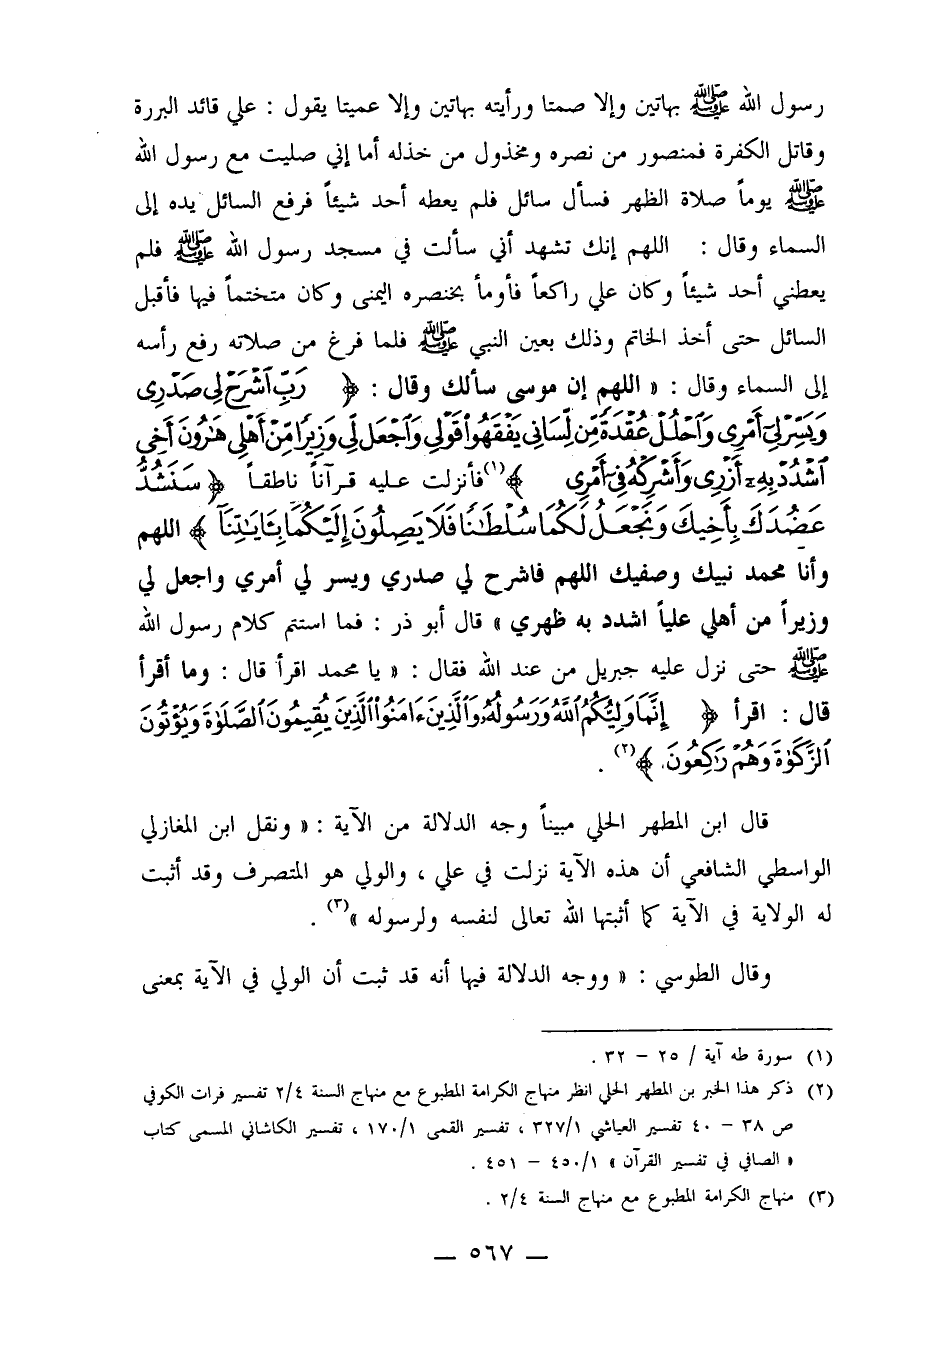 رسول الله ﷺ بهاتين وإلا صمتا ورأيته بهاتين وإلا عميتا يقول : علي قائد البررة
وقاتل الكفرة فمنصور من نصره ومخذول من خذله أما إني صليت مع رسول الله
ﷺ يوماً صلاة الظهر فسأل سائل فلم يعطه أحد شيئاً فرفع السائل يده إلى
السماء وقال : اللهم إنك تشهد أني سألت في مسجد رسول الله ﷺ فلم
يعطني أحد شيئاً وكان علي راكعاً فأومأ بخنصره اليمنى وكان متختماً فيها فأقبل
السائل حتى أخذ الخاتم وذلك بعين النبي ﷺ فلما فرغ من صلاته رفع رأسه
إلى السماء وقال : « اللهم إن موسى سألك وقال : ﴿ رَبِّ ٱشْرَحْ لِي صَدْرِى
وَيَسِّرْ لِىٓ أَمْرِى وَٱحْلُلْ عُقْدَةً مِّن لِّسَانِى يَفْقَهُوا۟ قَوْلِى وَٱجْعَل لِّى وَزِيرًا مِّنْ أَهْلِى هَٰرُونَ أَخِى
ٱشْدُدْ بِهِۦٓ أَزْرِى وَأَشْرِكْهُ فِىٓ أَمْرِى ﴾(١) فأنزلت عليه قرآناً ناطقاً ﴿ سَنَشُدُّ
عَضُدَكَ بِأَخِيكَ وَنَجْعَلُ لَكُمَا سُلْطَٰنًا فَلَا يَصِلُونَ إِلَيْكُمَا بِـَٔايَٰتِنَآ ﴾ اللهم
وأنا محمد نبيك وصفيك اللهم فاشرح لي صدري ويسر لي أمري واجعل لي
وزيراً من أهلي علياً اشدد به ظهري » قال أبو ذر : فما استتم كلام رسول الله
ﷺ حتى نزل عليه جبريل من عند الله فقال : « يا محمد اقرأ قال : وما أقرأ
قال : اقرأ ﴿ إِنَّمَا وَلِيُّكُمُ ٱللَّهُ وَرَسُولُهُۥ وَٱلَّذِينَ ءَامَنُوا۟ ٱلَّذِينَ يُقِيمُونَ ٱلصَّلَوٰةَ وَيُؤْتُونَ
ٱلزَّكَوٰةَ وَهُمْ رَٰكِعُونَ ﴾(٢) .
قال ابن المطهر الحلي مبيناً وجه الدلالة من الآية : « ونقل ابن المغازلي
الواسطي الشافعي أن هذه الآية نزلت في علي ، والولي هو المتصرف وقد أثبت
له الولاية في الآية كما أثبتها الله تعالى لنفسه ولرسوله »(٣) .
وقال الطوسي : « ووجه الدلالة فيها أنه قد ثبت أن الولي في الآية بمعنى
(١) سورة طه آية / ٢٥ – ٣٢ .
(٢) ذكر هذا الخبر بن المطهر الحلي انظر منهاج الكرامة المطبوع مع منهاج السنة ٢/٤ تفسير فرات الكوفي
ص ٣٨ – ٤٠ تفسير العياشي ٣٢٧/١ ، تفسير القمى ١٧٠/١ ، تفسير الكاشاني المسمى كتاب
« الصافي في تفسير القرآن » ٤٥٠/١ – ٤٥١ .
(٣) منهاج الكرامة المطبوع مع منهاج السنة ٢/٤ .
— ٥٦٧ —